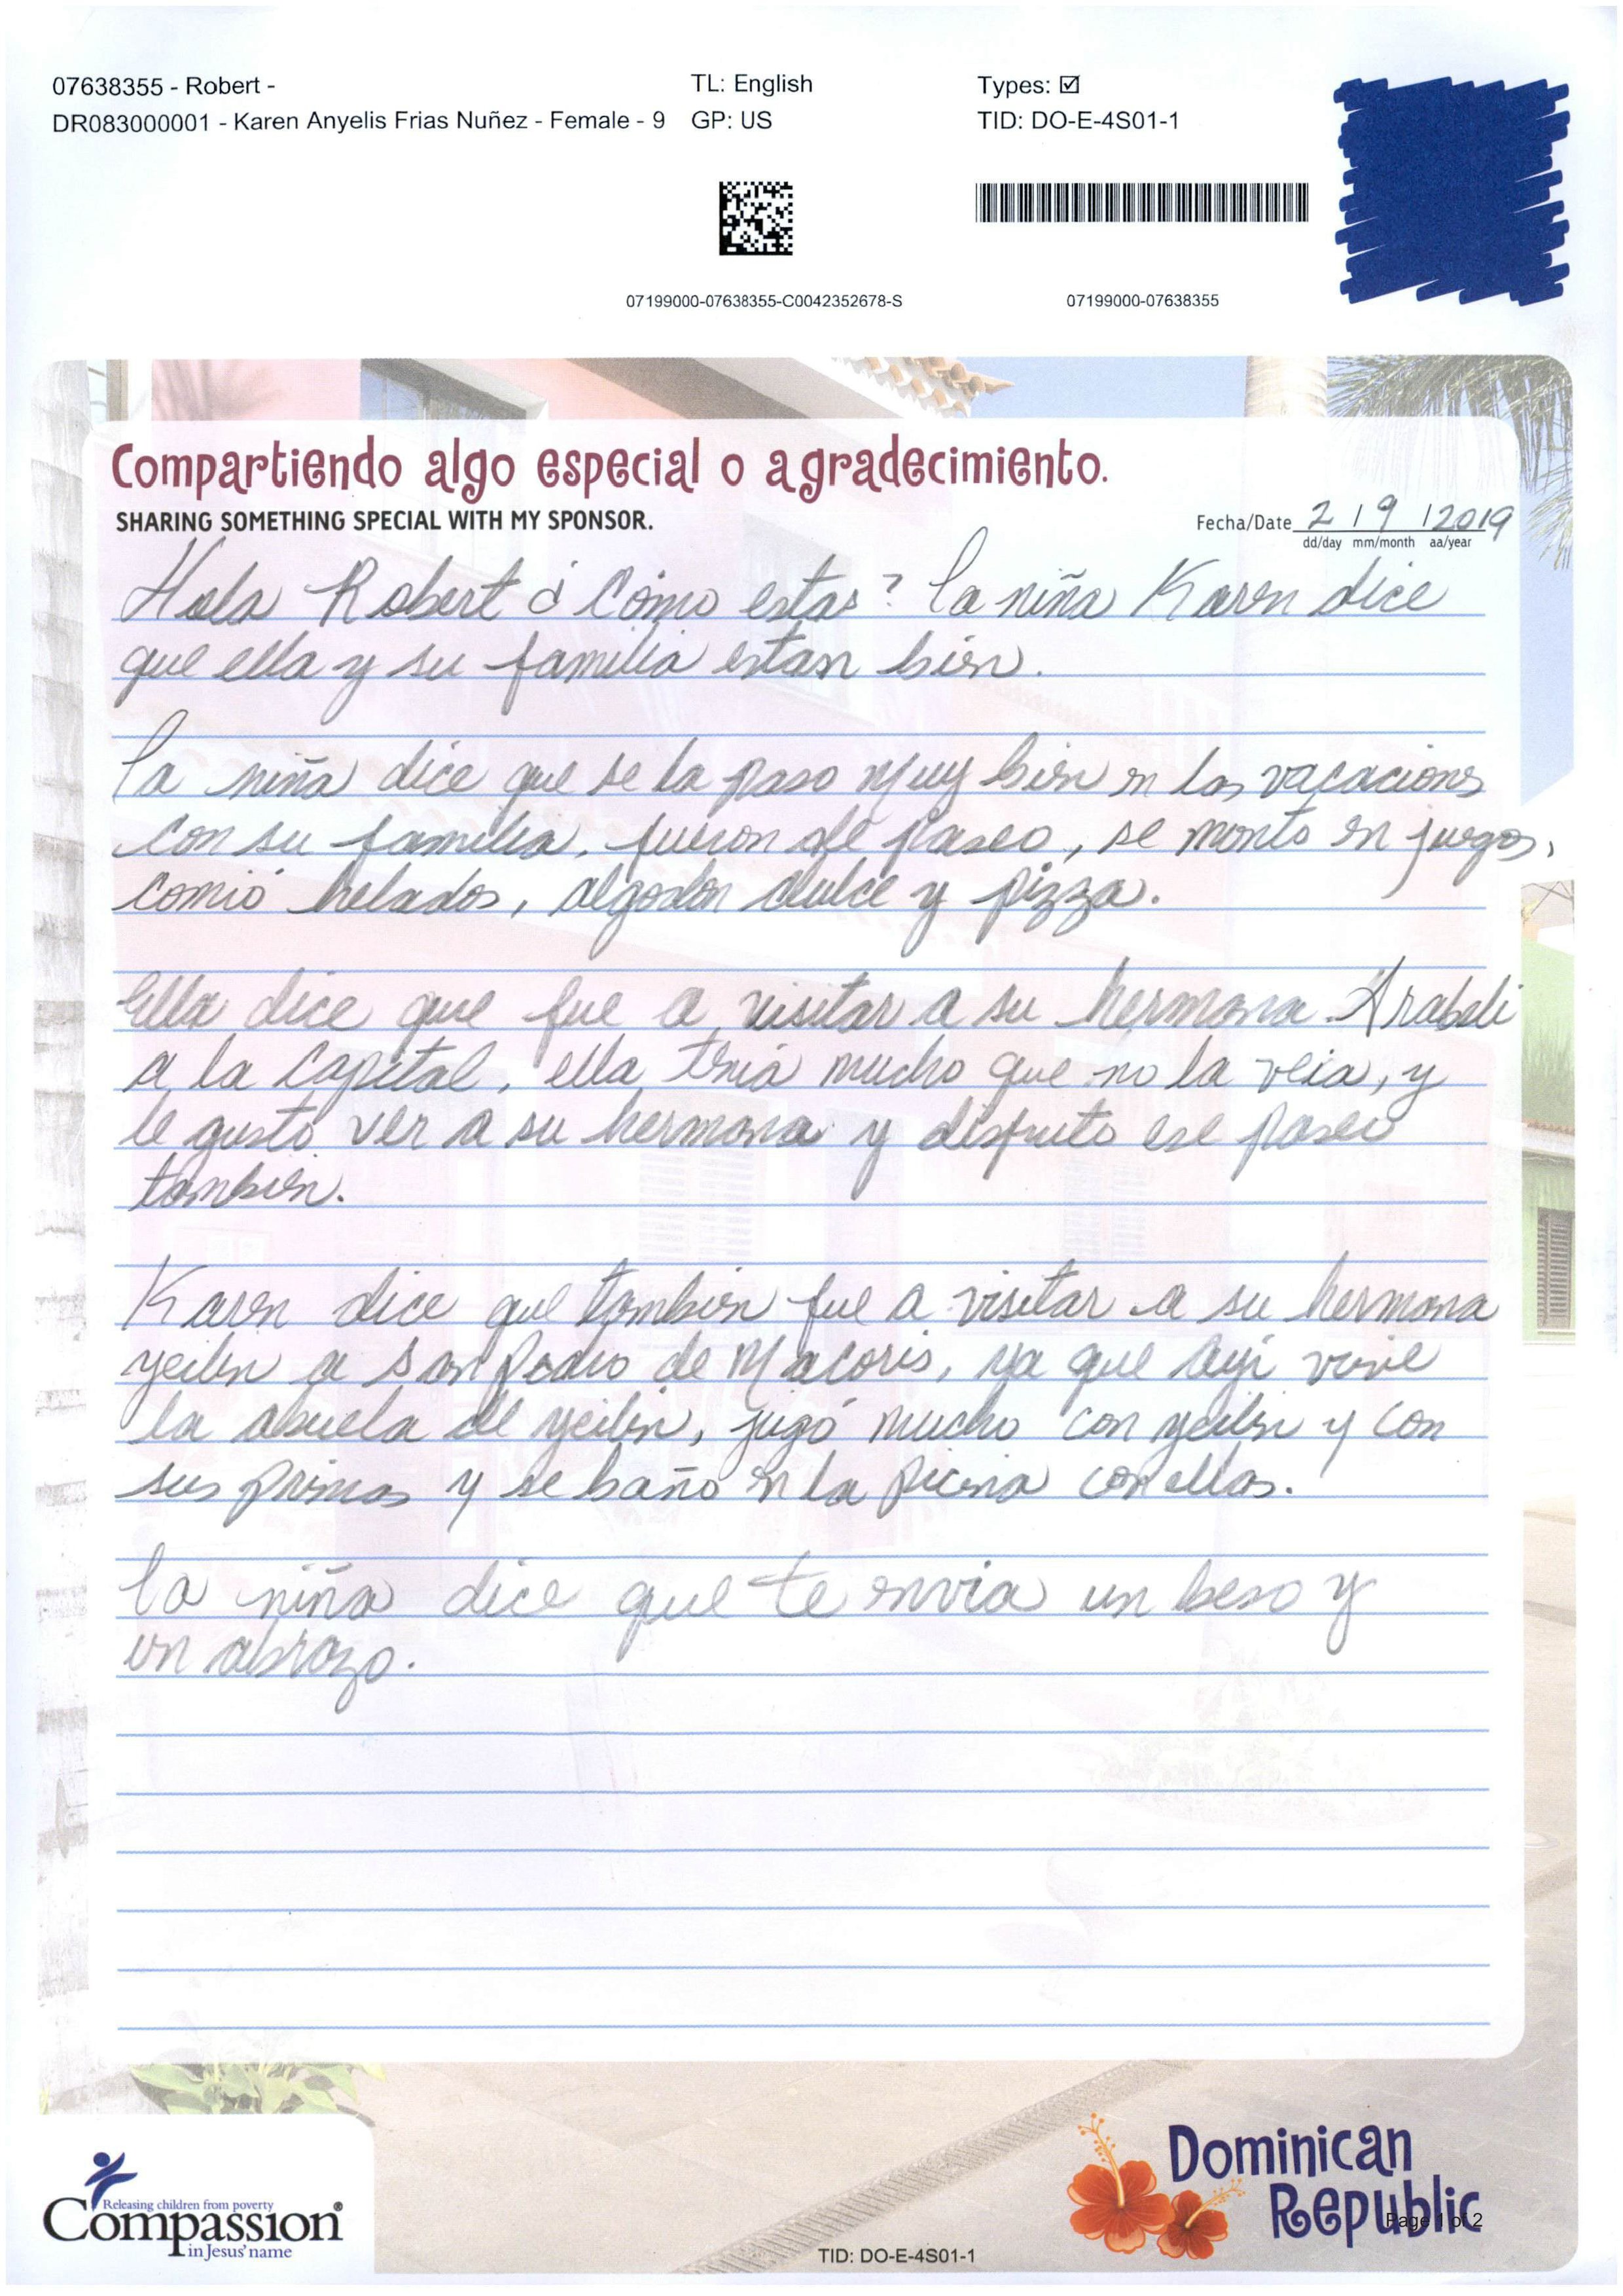 07638355 - Robert -
DR083000001 - Karen Anyelis Frias Nuñez - Female - 9
TL: English
GP: US
Types: ☑
TID: DO-E-4S01-1
07199000-07638355-C0042352678-S
07199000-07638355
Compartiendo algo especial o agradecimiento.
SHARING SOMETHING SPECIAL WITH MY SPONSOR.
Fecha/Date 2 / 9 / 2019
dd/day mm/month aa/year
Hola Robert ¿Cómo estas? La niña Karen dice
que ella y su familia estan bien.
La niña dice que se la paso muy bien en las vacaciones
con su familia, fueron de paseo, se monto en juegos,
comió helados, algodon dulce y pizza.
Ella dice que fue a visitar a su hermana Arabeli
a la Capital, ella tenía mucho que no la veia, y
le gusto ver a su hermana y disfruto ese paseo
tambien.
Karen dice que tambien fue a visitar a su hermana
yeilin a San Pedro de Macoris, ya que ayi vive
la abuela de yeilin, jugó mucho con yeilin y con
sus primas y se baño en la picina con ellas.
La niña dice que te envia un beso y
un abrazo.
Releasing children from poverty
Compassion®
in Jesus' name
TID: DO-E-4S01-1
Dominican
Republic
Page 1 of 2